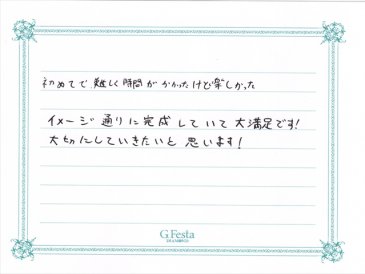 初めてで難しく時間がかかったけど楽しかった
イメージ通りに完成していて大満足です!
大切にしていきたいと思います!
G.Festa